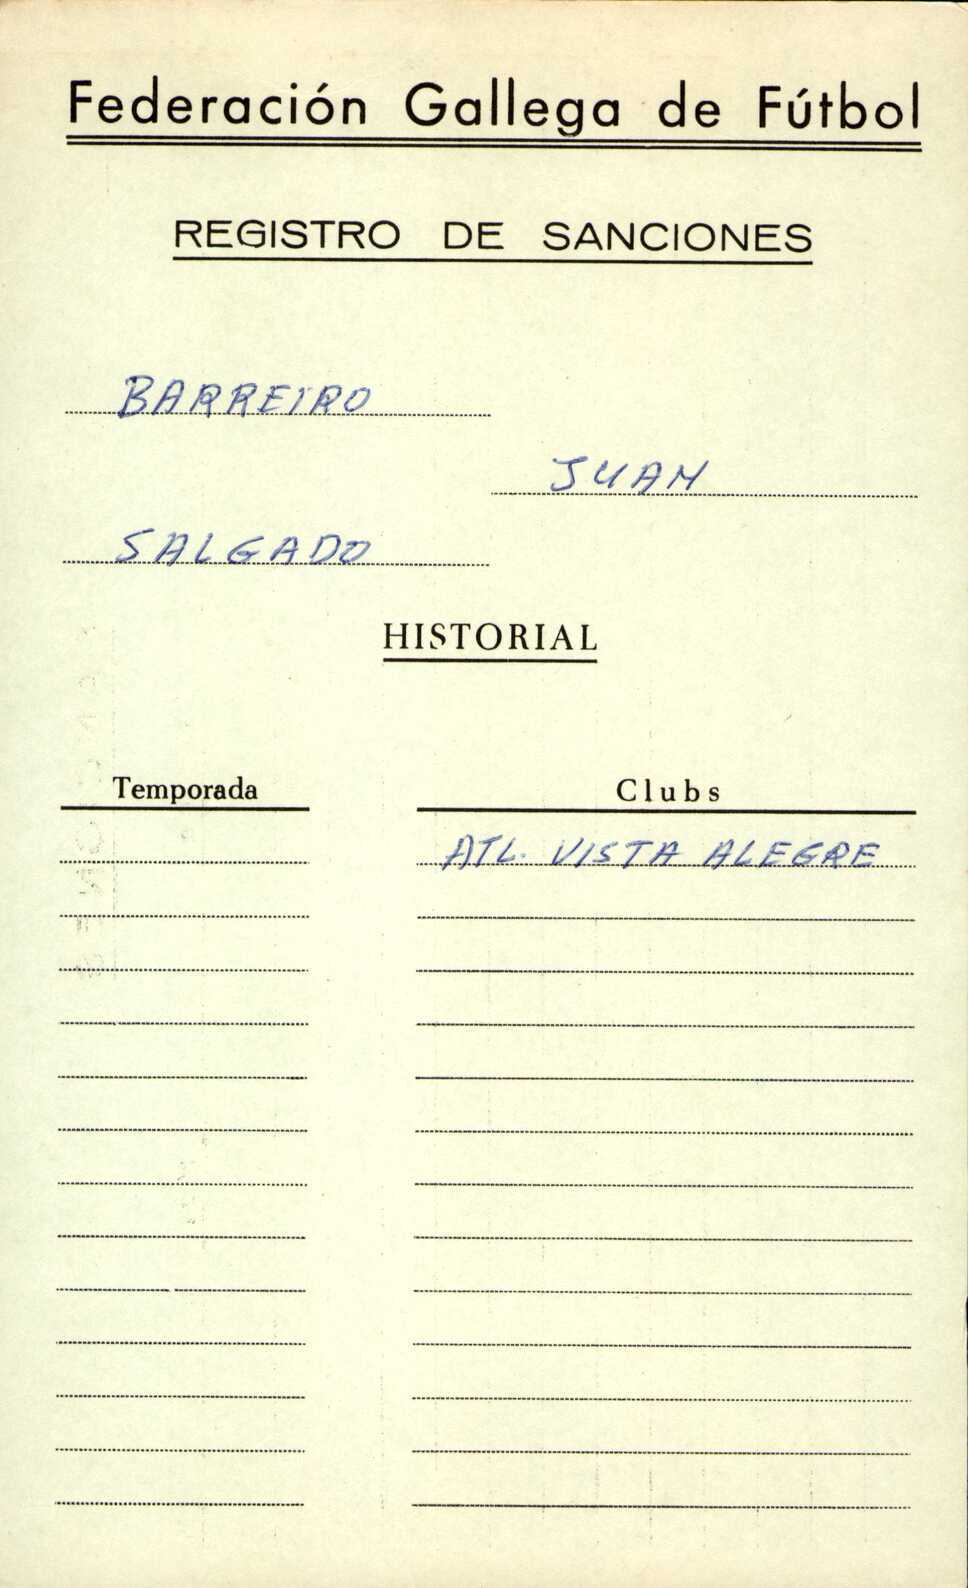 Federación Gallega de Fútbol
REGISTRO DE SANCIONES
BARREIRO
JUAN
SALGADO
HISTORIAL
Temporada Clubs
ATL. VISTA ALEGRE